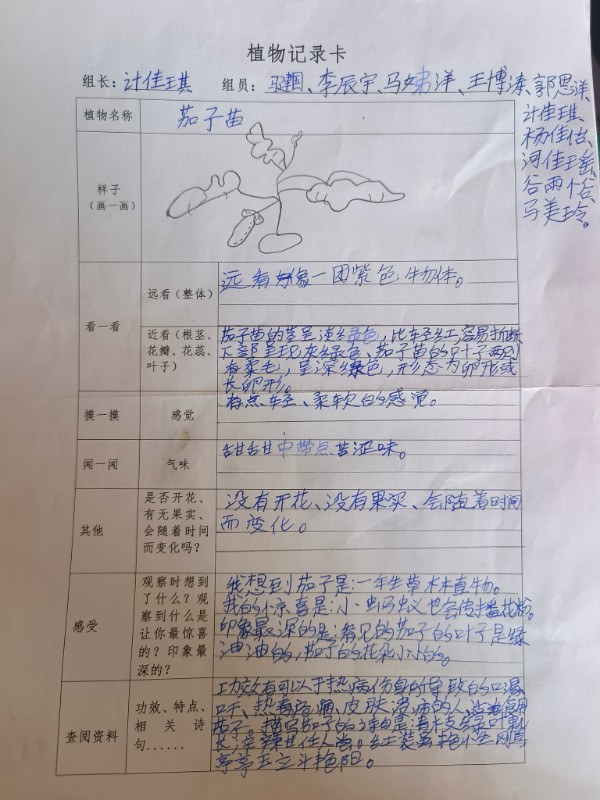 植物记录卡
组长：计佳琪 组员：李辰宇、马娣洋、王博溱、郭思洋、
计佳琪、
杨佳怡、
河佳瑶、
谷雨怡、
马美玲。
植物名称 茄子苗
样子
（画一画）
看一看
远看（整体） 远看好象一团紫色物体。
近看（根茎、
花瓣、花蕊、
叶子）
茄子苗的茎呈淡绿色，比较红，容易折断
下部呈现灰绿色、茄子苗的叶子两则
有柔毛，呈深绿色，形态为卵形或
长卵形。
摸一摸 感觉 有点轻、柔软的感觉。
闻一闻 气味 甜甜中带点苦涩味。
其他
是否开花、
有无果实、
会随着时间
而变化吗？
没有开花、没有果实、会随着时间
而变化。
感受
观察时想到
了什么？观
察到什么是
让你最惊喜
的？印象最
深的？
我想到茄子是：一年生草木植物。
我的惊喜是：小虫吗虫义也会传播花粉。
印象最深的是：看见的茄子的叶子是绿
油油的，茄子的花朵小小的。
查阅资料
功效、特点、
相关诗
句……
功效有可以于热病伤身的导致的口渴
茄子。描写茄子的
亭亭玉立斗艳阳。